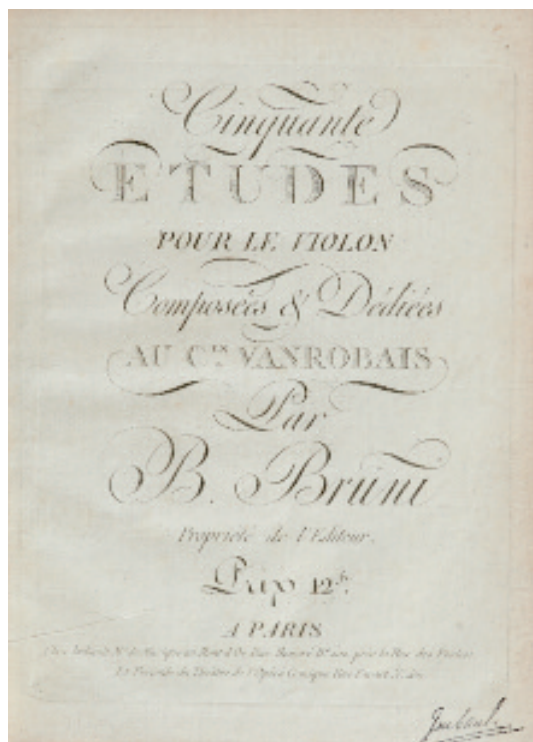 Cinquante
ETUDES
POUR LE VIOLON
Composées & Dédiées
AU C.EN VANROBAIS
Par
B. Bruni
Propriété de l'Editeur.
Prix 12.tt
A PARIS
Chez Imbault M.d de Musique au Mont d'Or Rue Honoré près la Rue des
Et Péristile du Théâtre de l'Opéra Comique Rue Favart N.°